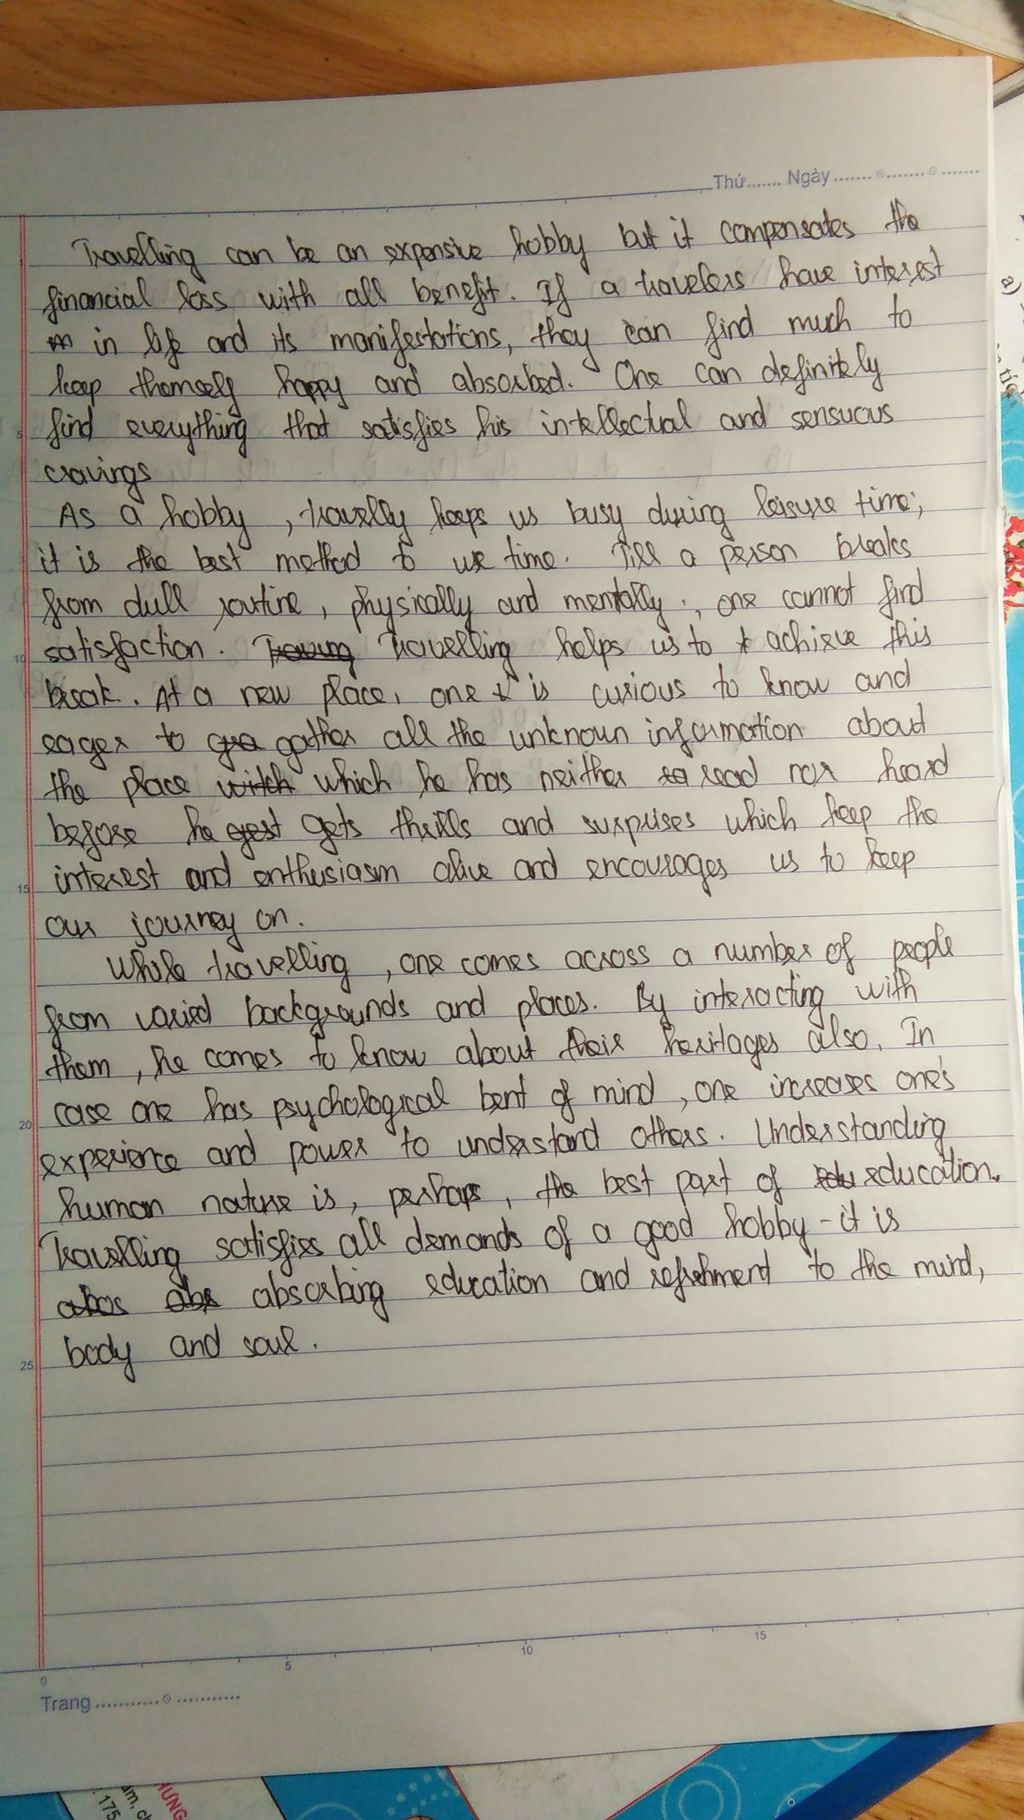 Thứ....... Ngày
Travelling can be an expensive hobby but it compensates the
financial loss with all benefit. If a travelers have interest
in life and its manifestations, they can find much to
keep themself happy and absorbed. One can definitely
5 find everything that satisfies his intellectual and sensuous
cravings
As a hobby, travelly keeps us busy during leisure time;
it is the best method to use time. Till a person breaks
from dull routine, physically and mentally, one cannot find
10 satisfaction. Travelling helps us to achieve this
break. At a new place, one is curious to know and
eager to gather all the unknown information about
the place which he has neither read nor heard
before he gets thrills and surprises which keep the
15 interest and enthusiasm alive and encourages us to keep
our journey on.
While travelling, one comes across a number of people
from varied backgrounds and places. By interacting with
them, he comes to know about their heritages also. In
20 case one has psychological bent of mind, one increases one's
experience and power to understand others. Understanding
human nature is, perhaps, the best part of education.
Travelling satisfies all demands of a good hobby - it is
absorbing education and refreshment to the mind,
25 body and soul.
0 5 10 15
Trang
HUNG
175
a)